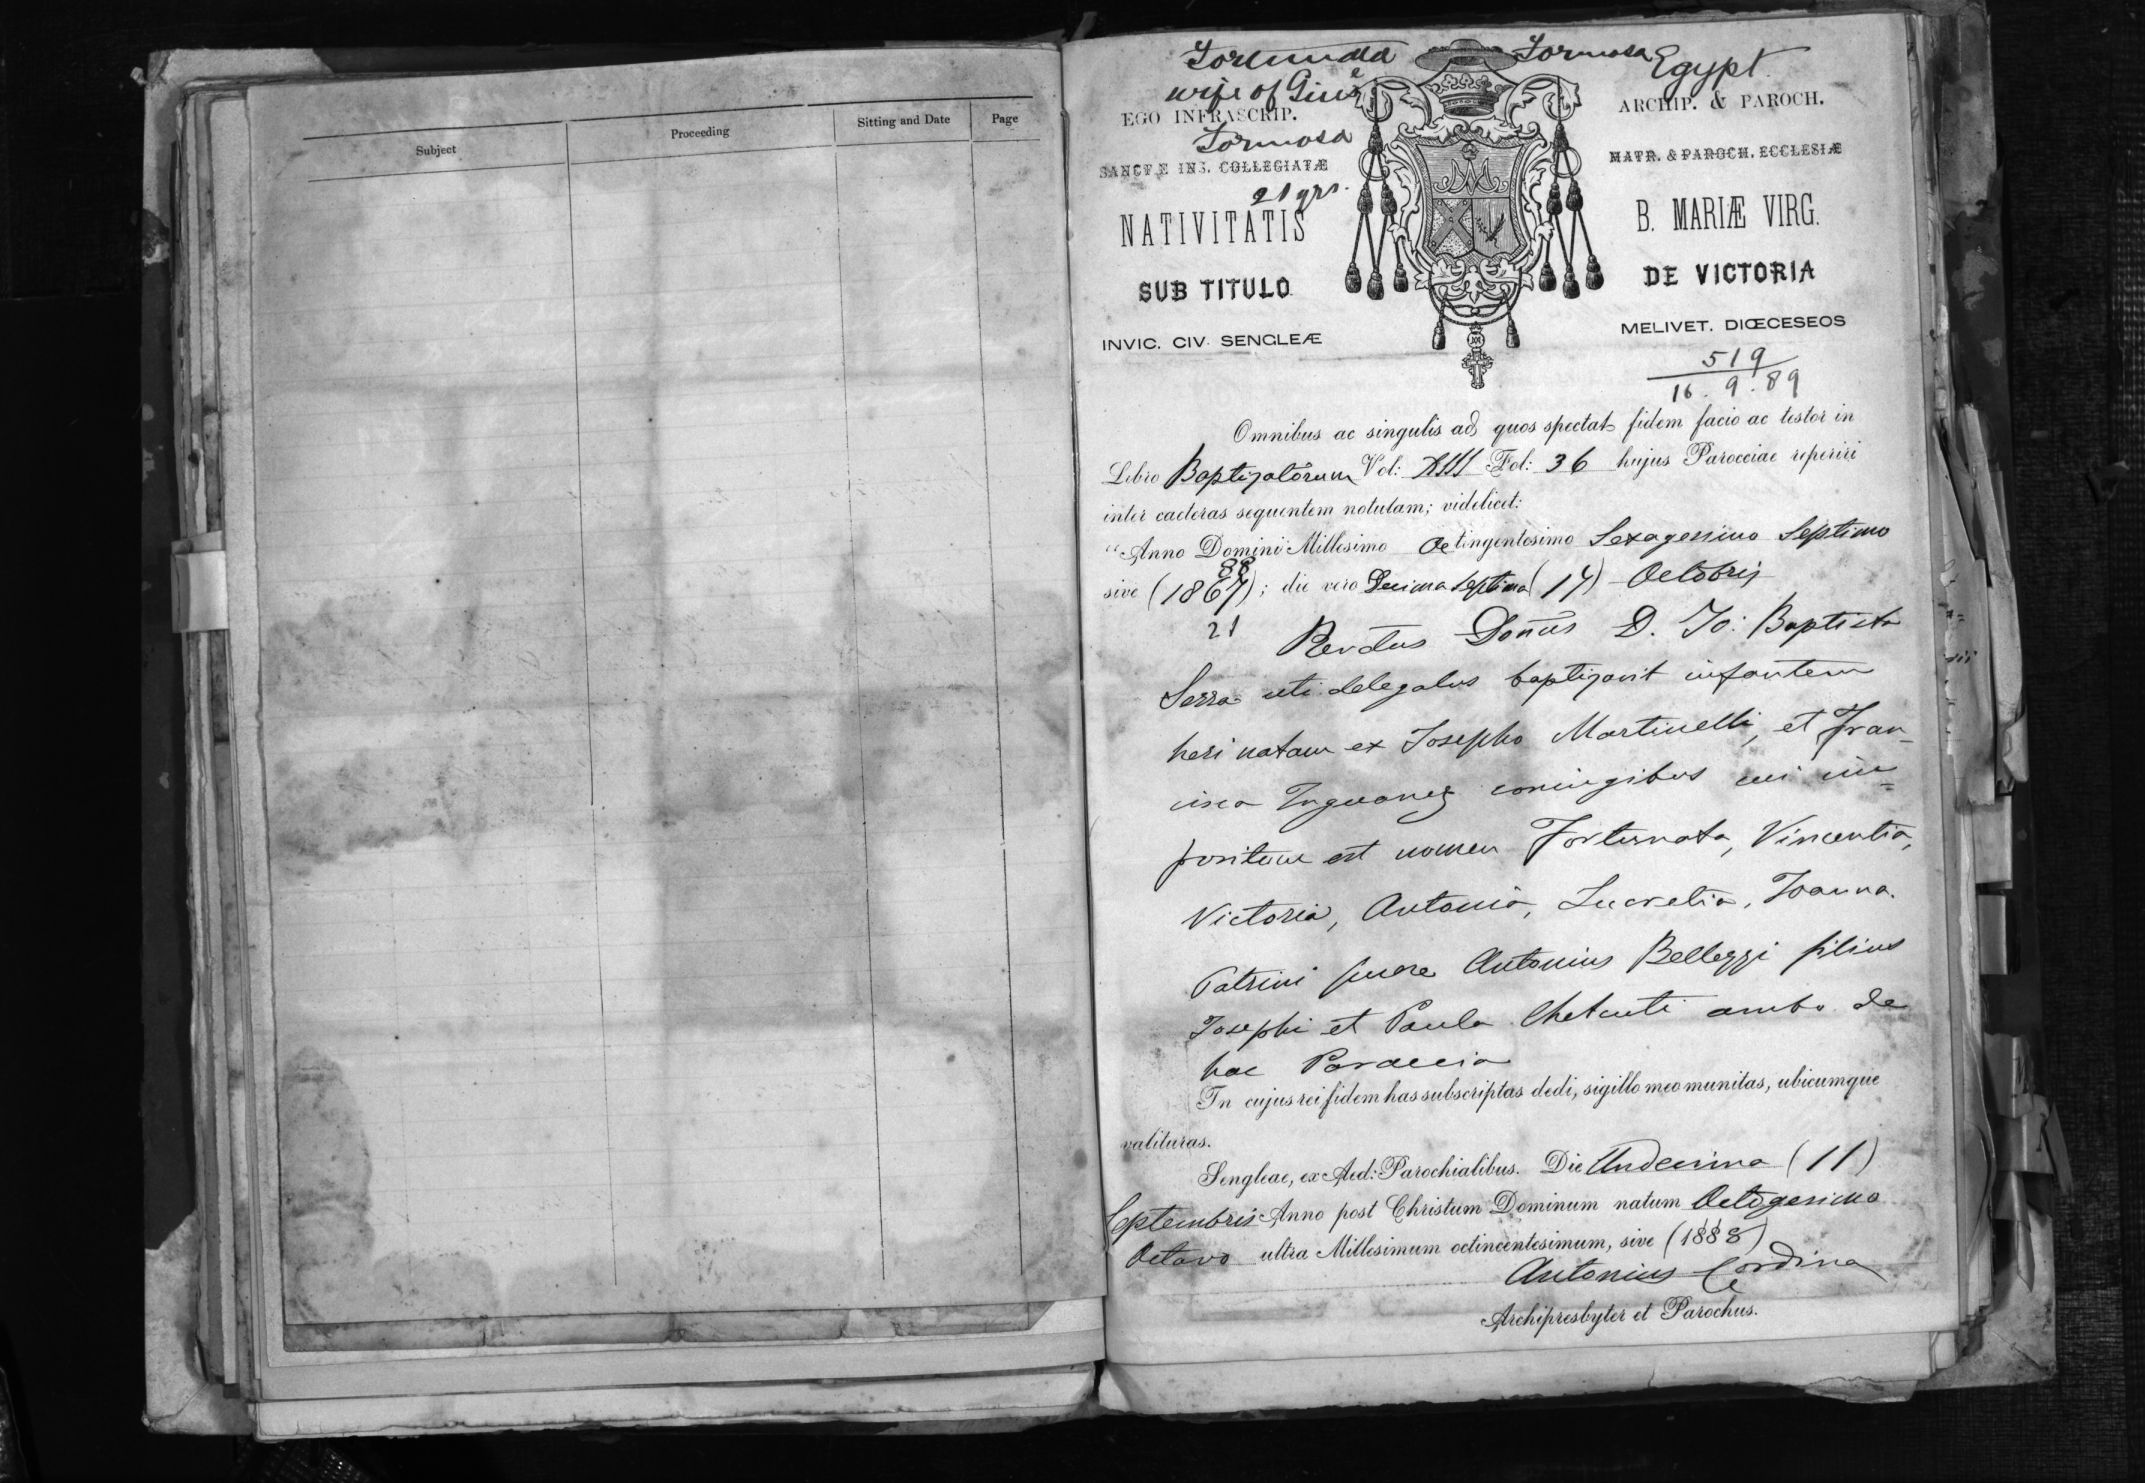 Subject
Proceeding
Sitting and Date
Page
Fortunata Formosa Egypt
wife of Giuse
EGO INFRASCRIP. ARCHIP. & PAROCH.
Formosa
SANCTÆ INS. COLLEGIATÆ MATR. & PAROCH. ECCLESIÆ
21 yrs.
NATIVITATIS B. MARIÆ VIRG.
SUB TITULO DE VICTORIA
INVIC. CIV. SENGLEÆ MELIVET. DIŒCESEOS
519
16. 9. 89
Omnibus ac singulis ad quos spectat fidem facio ac testor in
Libro Baptizatorum Vol: XIII Fol: 36 hujus Parocciae reperiri
inter caeteras sequentem notulam; videlicet:
"Anno Domini Millesimo Octingentesimo Sexagesimo Septimo
88
sive (1867); die vero Decima Septima (17) Octobris
21
Revdus Donus D. Jo: Baptista
Serra uti delegatus baptizavit infantem
heri natam ex Josepho Martinelli, et Fran-
cisca Inguanez coniugibus cui im=
positum est nomen Fortunata, Vincentia,
Victoria, Antonia, Lucretia, Joanna.
Patrini fuere Antonius Belleggi filius
Josephi et Paula Chetcuti ambo de
hac Paroccia
In cujus rei fidem has subscriptas dedi, sigillo meo munitas, ubicumque
valituras.
Sengleae, ex Aed: Parochialibus. Die Undecima (11)
Septembris Anno post Christum Dominum natum Octogesimo
Octavo ultra Millesimum octincentesimum, sive (1888)
Antonius Cordina
Archipresbyter et Parochus.